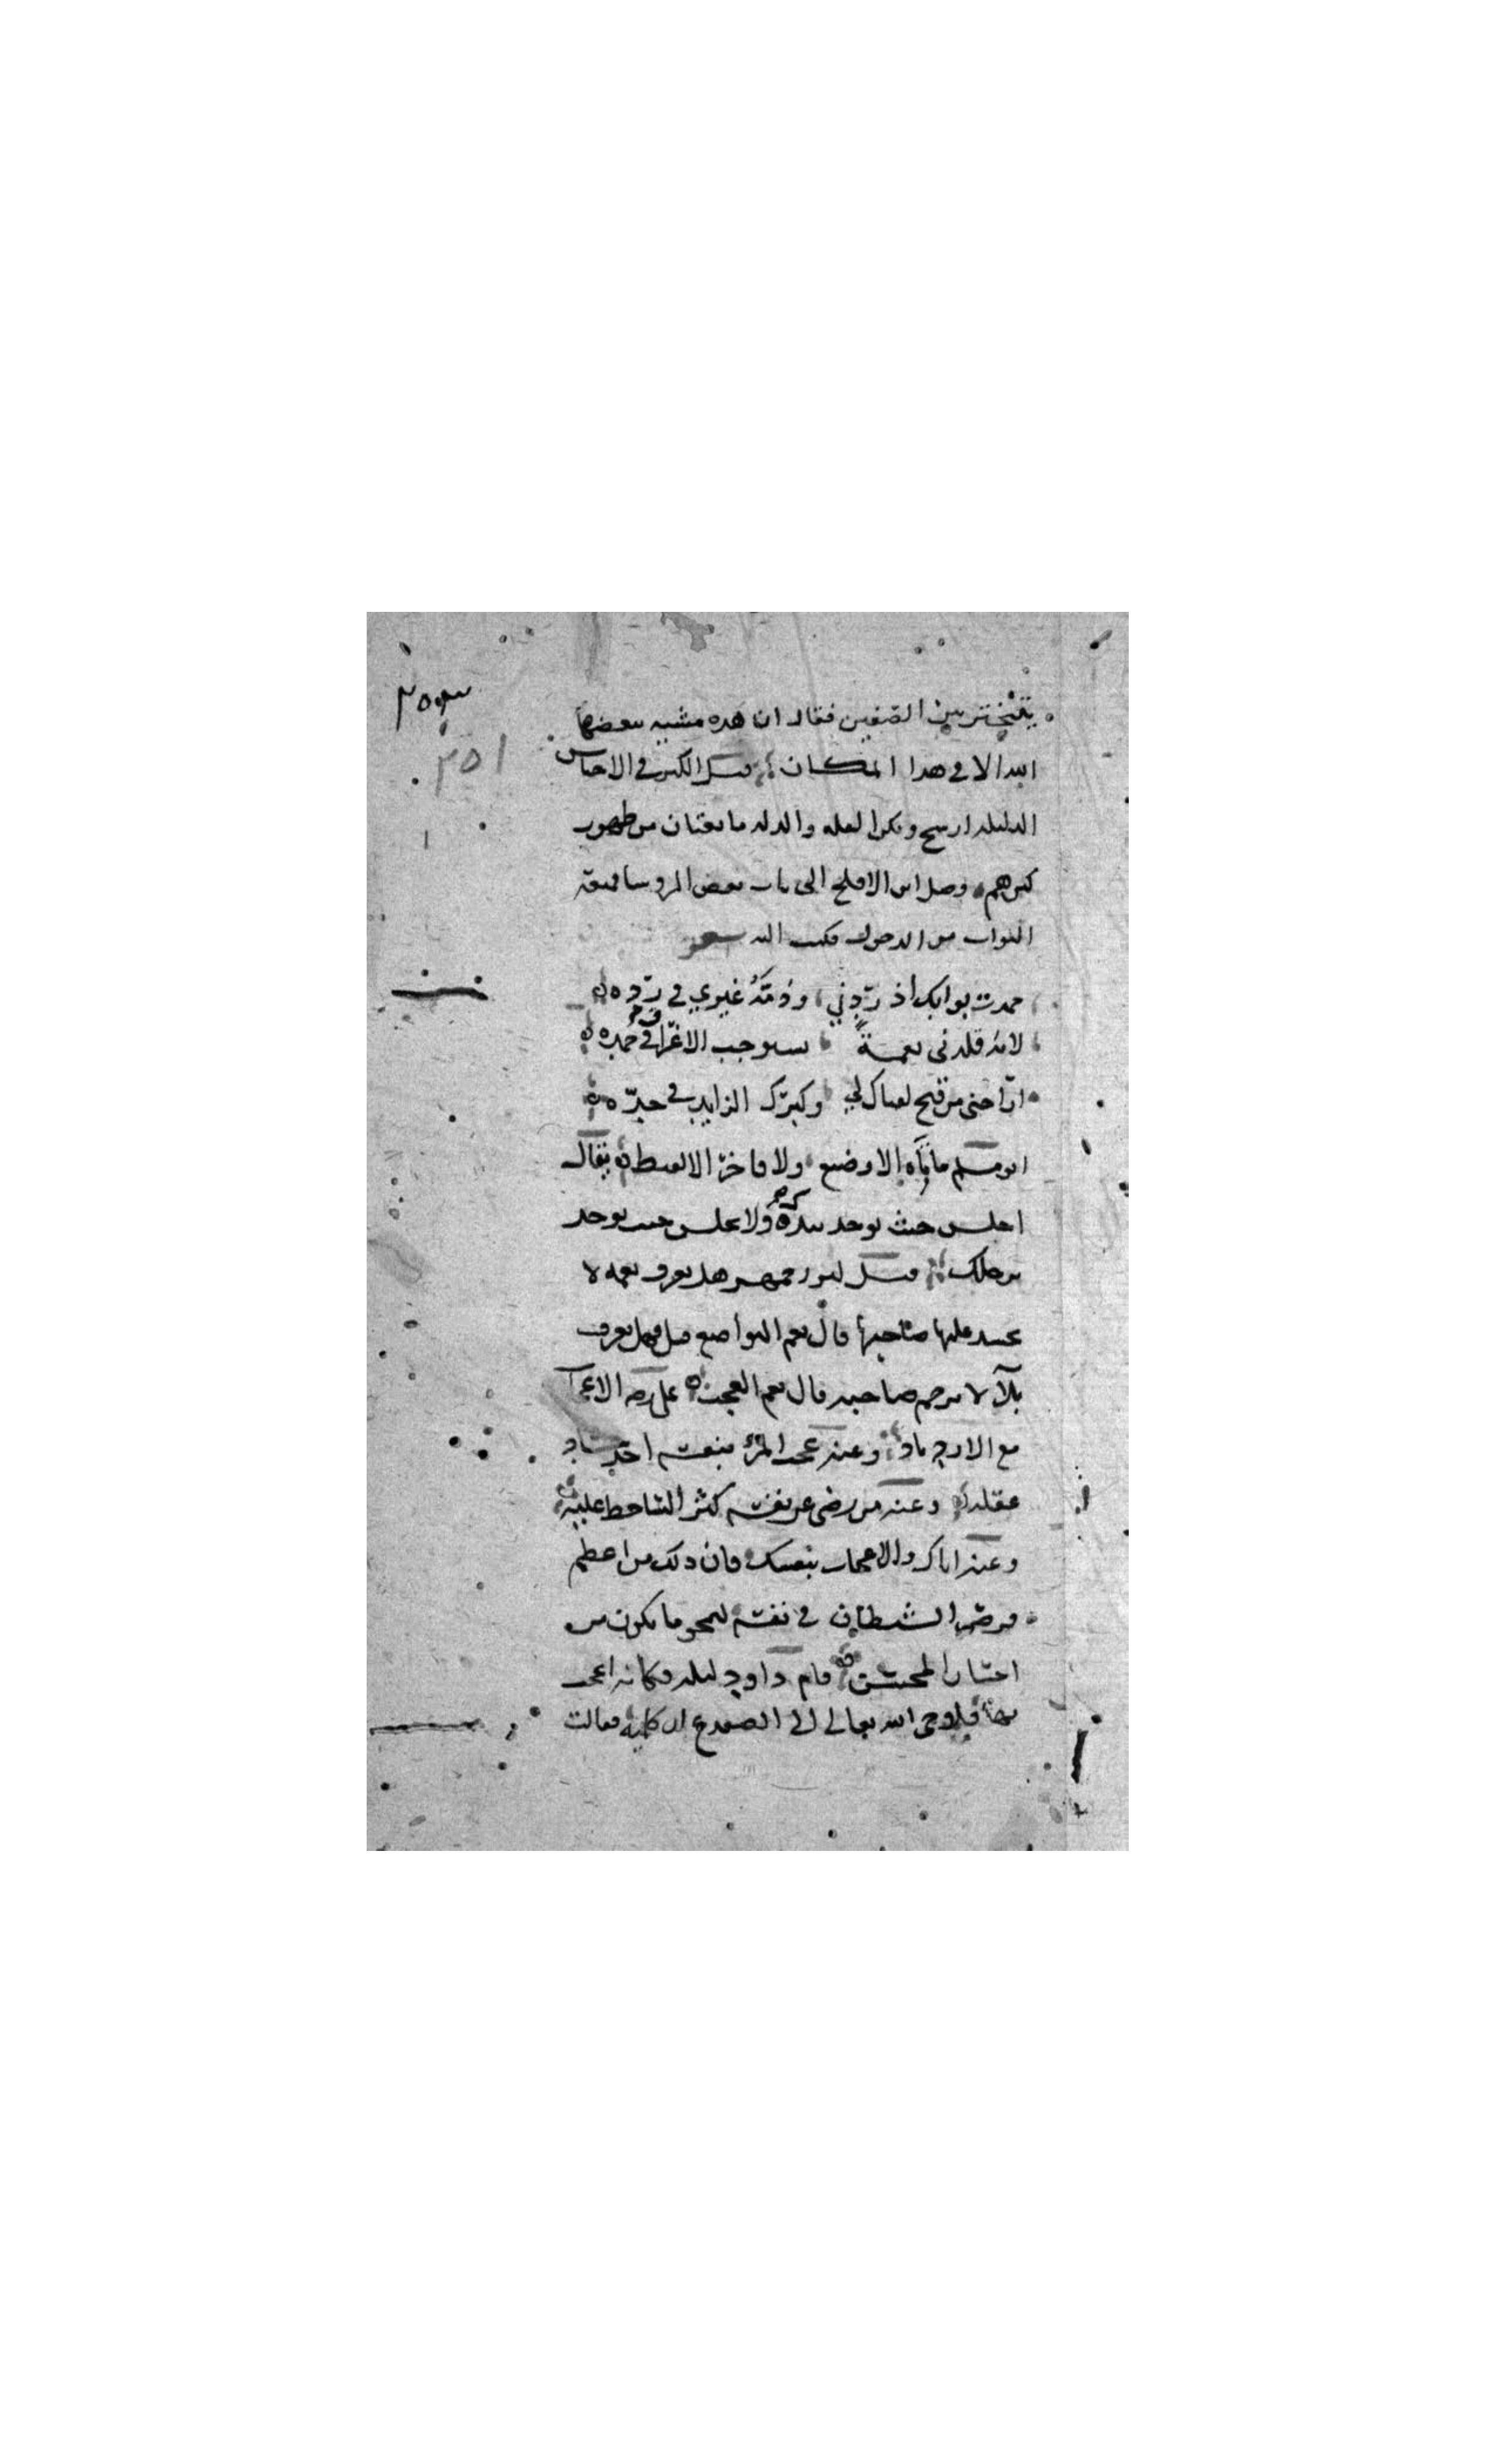 ٢٥٣
٢٥١
يتبختر بين الصفين فقال ان هذه مشية يبغضها
الله الا في هذا المكان قيل الكبر في الاجناس
الذليلة ارسخ ولكن القلة والذلة مانعتان من ظهور
كبرهم وصل ابن الافلح الى باب بعض الروسا فمنعه
البواب من الدخول فكتب اليه شعر
حمدت بوابك اذ ردني وذمه غيري في رده
لانه قلدني نعمة تستوجب الاغراق في حمده
اراحني من قبح لقياك لي وكبرك الزايد في حده
ابو مسلم ما تاه الا وضيع ولا فاخر الا لقيط يقال
اجلس حيث توخذ بيدك وتبر ولا تجلس حيث توخذ
برجلك قيل لبزرجمهر هل تعرف نعمة لا
يحسد عليها صاحبها قال نعم التواضع قيل فهل تعرف
بلآ لا يرحم صاحبه قال نعم العجب علي رضه الاعجا
مع الازدياد وعنه عجب المرء بنفسه احد حساد
عقله وعنه من رضي عن نفسه كثر الساخط عليه
وعنه اياك والاعجاب بنفسك فان ذلك من اعظم
فرص الشيطان في نفسه ليمحو ما يكون من
احسان المحسن قام داود ليلة فكانه اعجب
بها فاوحى الله تعالى الى الضفدع ان كلميه فقالت